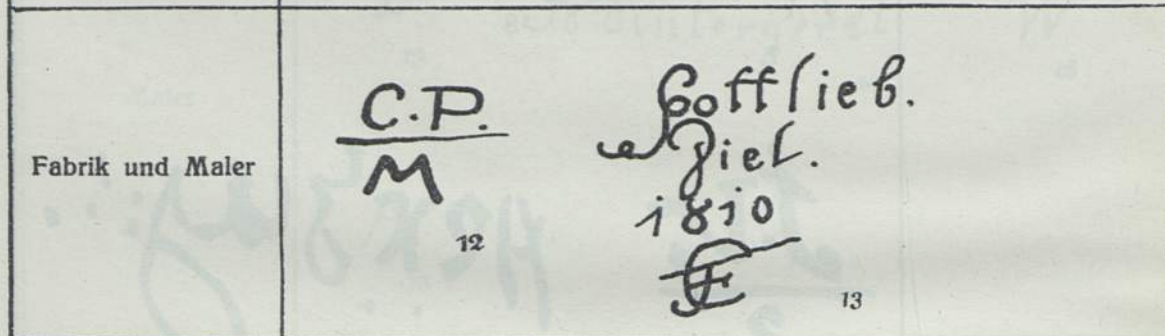 Fabrik und Maler
C.P.
M
12
Gottlieb.
Ziel.
1810
13